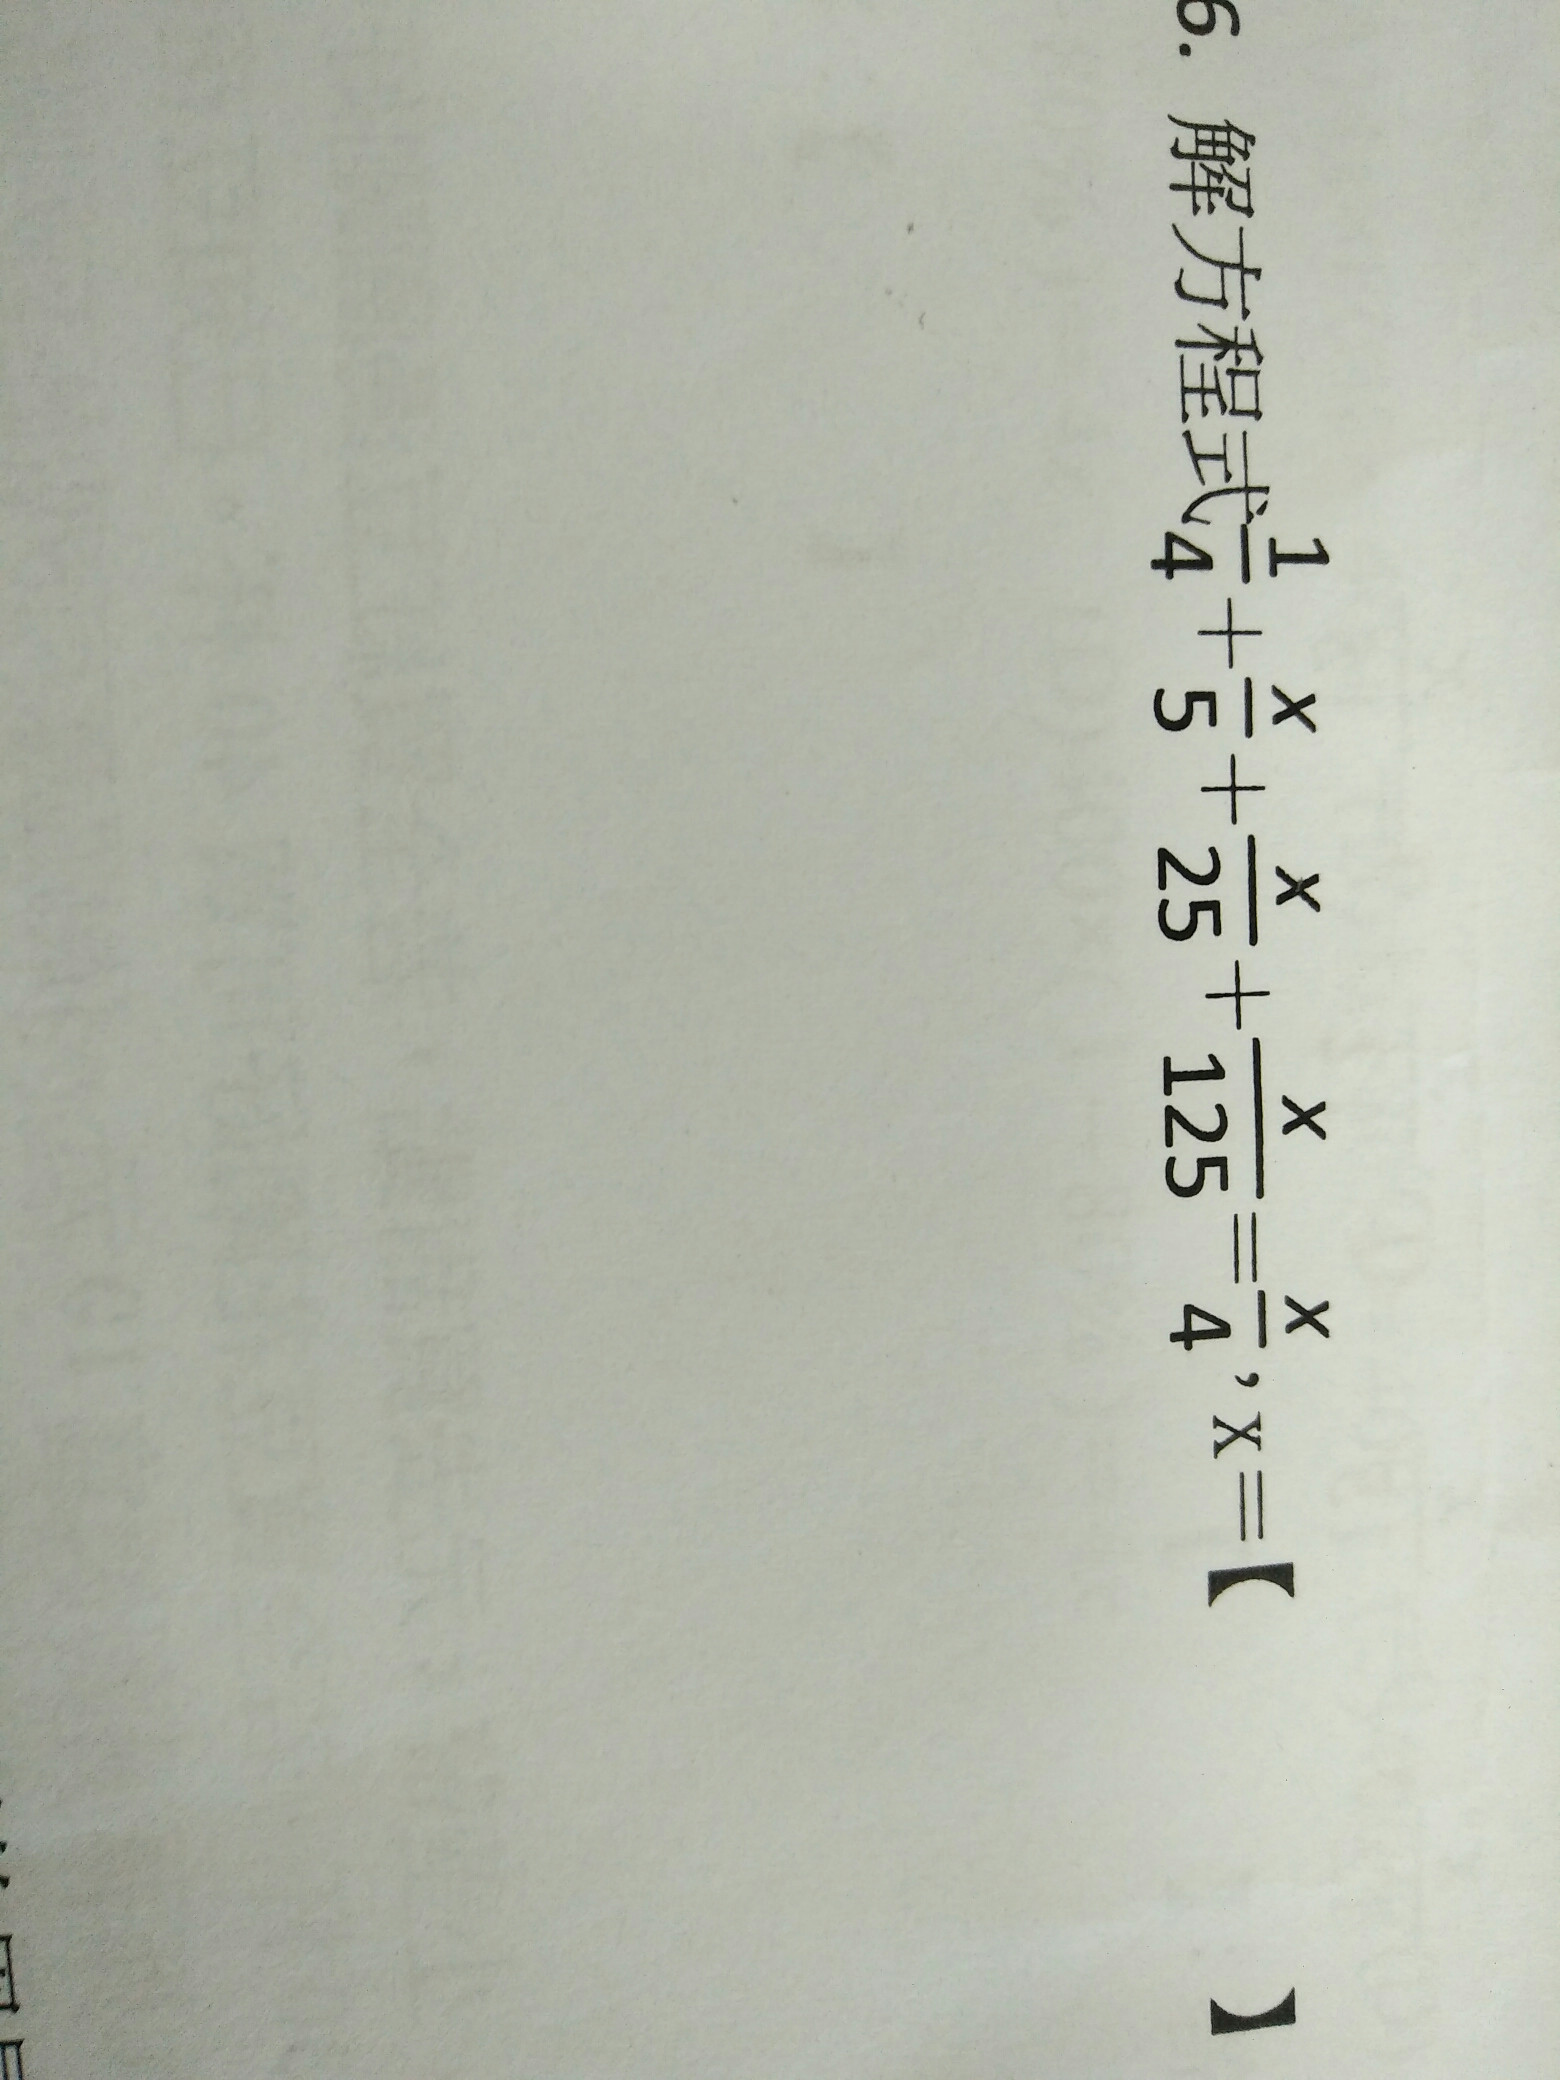 6. 解方程式 1/4 + x/5 + x/25 + x/125 = x/4, x=【 】